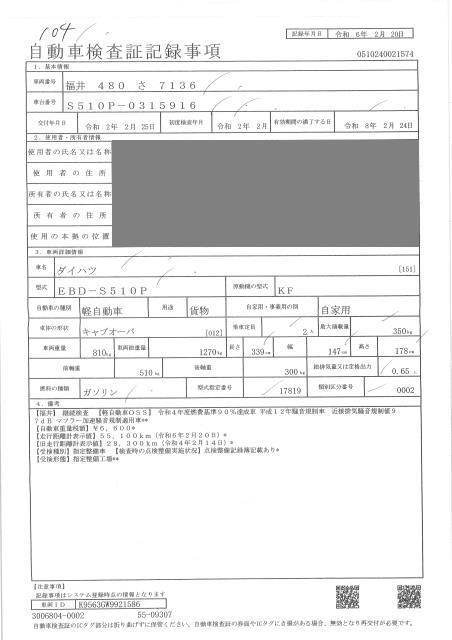 104
記録年月日 令和 6年 2月 20日
自動車検査証記録事項
0510240021574
1. 基本情報
車両番号 福井 480 さ 7136
車台番号 S510P-0315916
交付年月日 令和 2年 2月 25日 初度検査年月 令和 2年 2月 有効期間の満了する日 令和 8年 2月 24日
2. 使用者・所有者情報
使用者の氏名又は名称
使用者の住所
所有者の氏名又は名称
所有者の住所
使用の本拠の位置
3. 車両詳細情報
車名 ダイハツ [151]
型式 EBD-S510P 原動機の型式 KF
自動車の種別 軽自動車 用途 貨物 自家用・事業用の別 自家用
車体の形状 キャブオーバ [012] 乗車定員 2人 最大積載量 350kg
車両重量 810kg 車両総重量 1270kg 長さ 339cm 幅 147cm 高さ 178cm
前軸重 510kg 後軸重 300kg 総排気量又は定格出力 0.65L
燃料の種類 ガソリン 型式指定番号 17819 類別区分番号 0002
4. 備考
【福井】 継続検査 【軽自動車OSS】 令和4年度燃費基準90%達成車 平成12年騒音規制車 近接排気騒音規制値9
7dB マフラー加速騒音規制適用車**
【自動車重量税額】￥6,600*
【走行距離計表示値】55,100km（令和6年2月20日）*
【旧走行距離計表示値】28,300km（令和4年2月14日）*
【受検種別】指定整備車 【検査時の点検整備実施状況】点検整備記録簿記載あり*
【受検形態】指定整備工場**
【注意事項】
記録事項はシステム登録時点の情報となります
車両ID K9563GW9921586
3006804-0002 55-09307
自動車検査証のICタグ部分は折り曲げずに保管ください。自動車検査証の券面やICタグにき損がある場合、無効となり再交付が必要です。